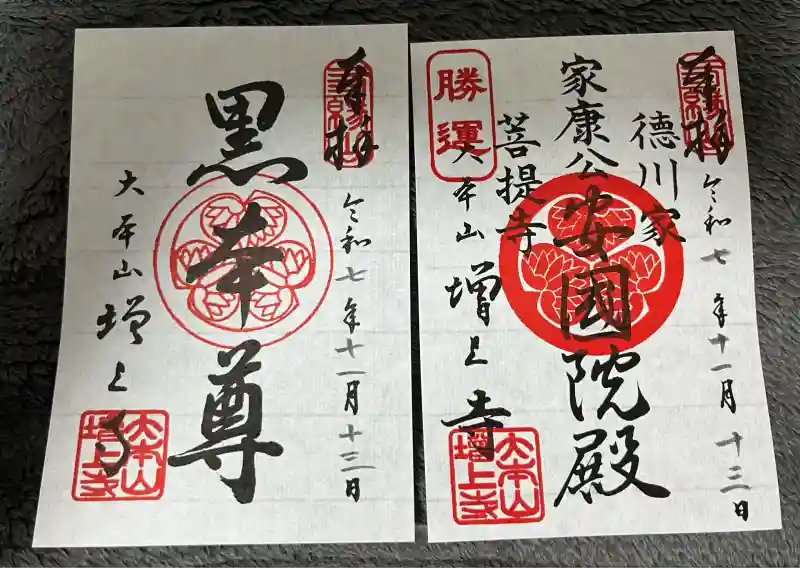 奉拝
令和七年十一月十三日
黒本尊
大本山
増上寺
大本山
増上寺
奉拝
令和七年十一月十三日
徳川家
家康公
安國院殿
菩提寺
勝運
大本山
増上寺
大本山
増上寺